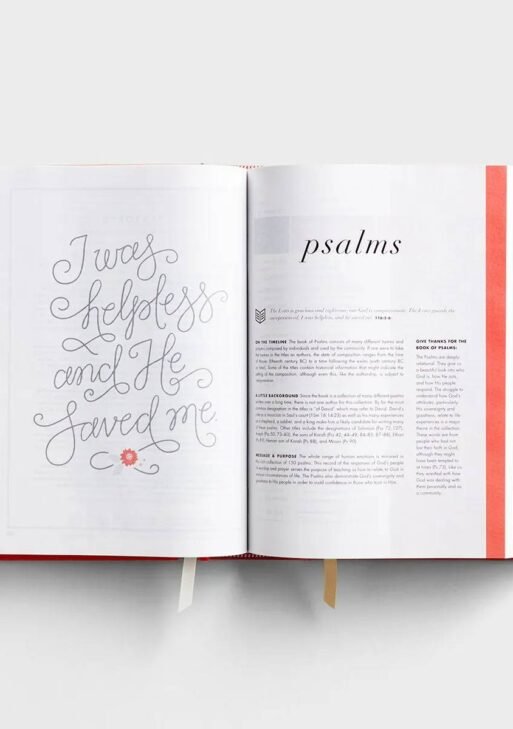 I was
helpless
and He
saved me.
psalms
The Lord is gracious and righteous; our God is compassionate. The Lord guards the
inexperienced; I was helpless, and he saved me. 116:5-6
ON THE TIMELINE The book of Psalms consists of many different hymns and
prayers composed by individuals and used by the community. If one were to take
the names in the titles as authors, the date of composition ranges from the time
of Moses (fifteenth century BC) to a time following the exile (sixth century BC
or later). Some of the titles contain historical information that might indicate the
setting of the composition, although even this, like the authorship, is subject to
interpretation.
A LITTLE BACKGROUND Since the book is a collection of many different psalms
written over a long time, there is not one author for this collection. By far the most
common designation in the titles is "of David" which may refer to David. David's
role as a musician in Saul's court (1Sm 16:14-23) as well as his many experiences
as a shepherd, a soldier, and a king make him a likely candidate for writing many
of these psalms. Other titles include the designations of Solomon (Ps 72; 127),
Asaph (Ps 50; 73-83), the sons of Korah (Ps 42; 44-49; 84-85; 87-88), Ethan
(Ps 89), Heman son of Korah (Ps 88), and Moses (Ps 90).
MESSAGE & PURPOSE The whole range of human emotions is mirrored in
this collection of 150 psalms. This record of the responses of God's people
in worship and prayer serves the purpose of teaching us how to relate to God in
various circumstances of life. The Psalms also demonstrate God's sovereignty and
goodness to His people in order to instill confidence in those who trust in Him.
GIVE THANKS FOR THE
BOOK OF PSALMS:
The Psalms are deeply
relational. They give us
a beautiful look into who
God is, how He acts,
and how His people
respond. The struggle to
understand how God's
attributes, particularly
His sovereignty and
goodness, relate to life
experiences is a major
theme in the collection.
These words are from
people who had not
lost their faith in God,
although they might
have been tempted to
at times (Ps 73). Like us,
they wrestled with how
God was dealing with
them personally and as
a community.